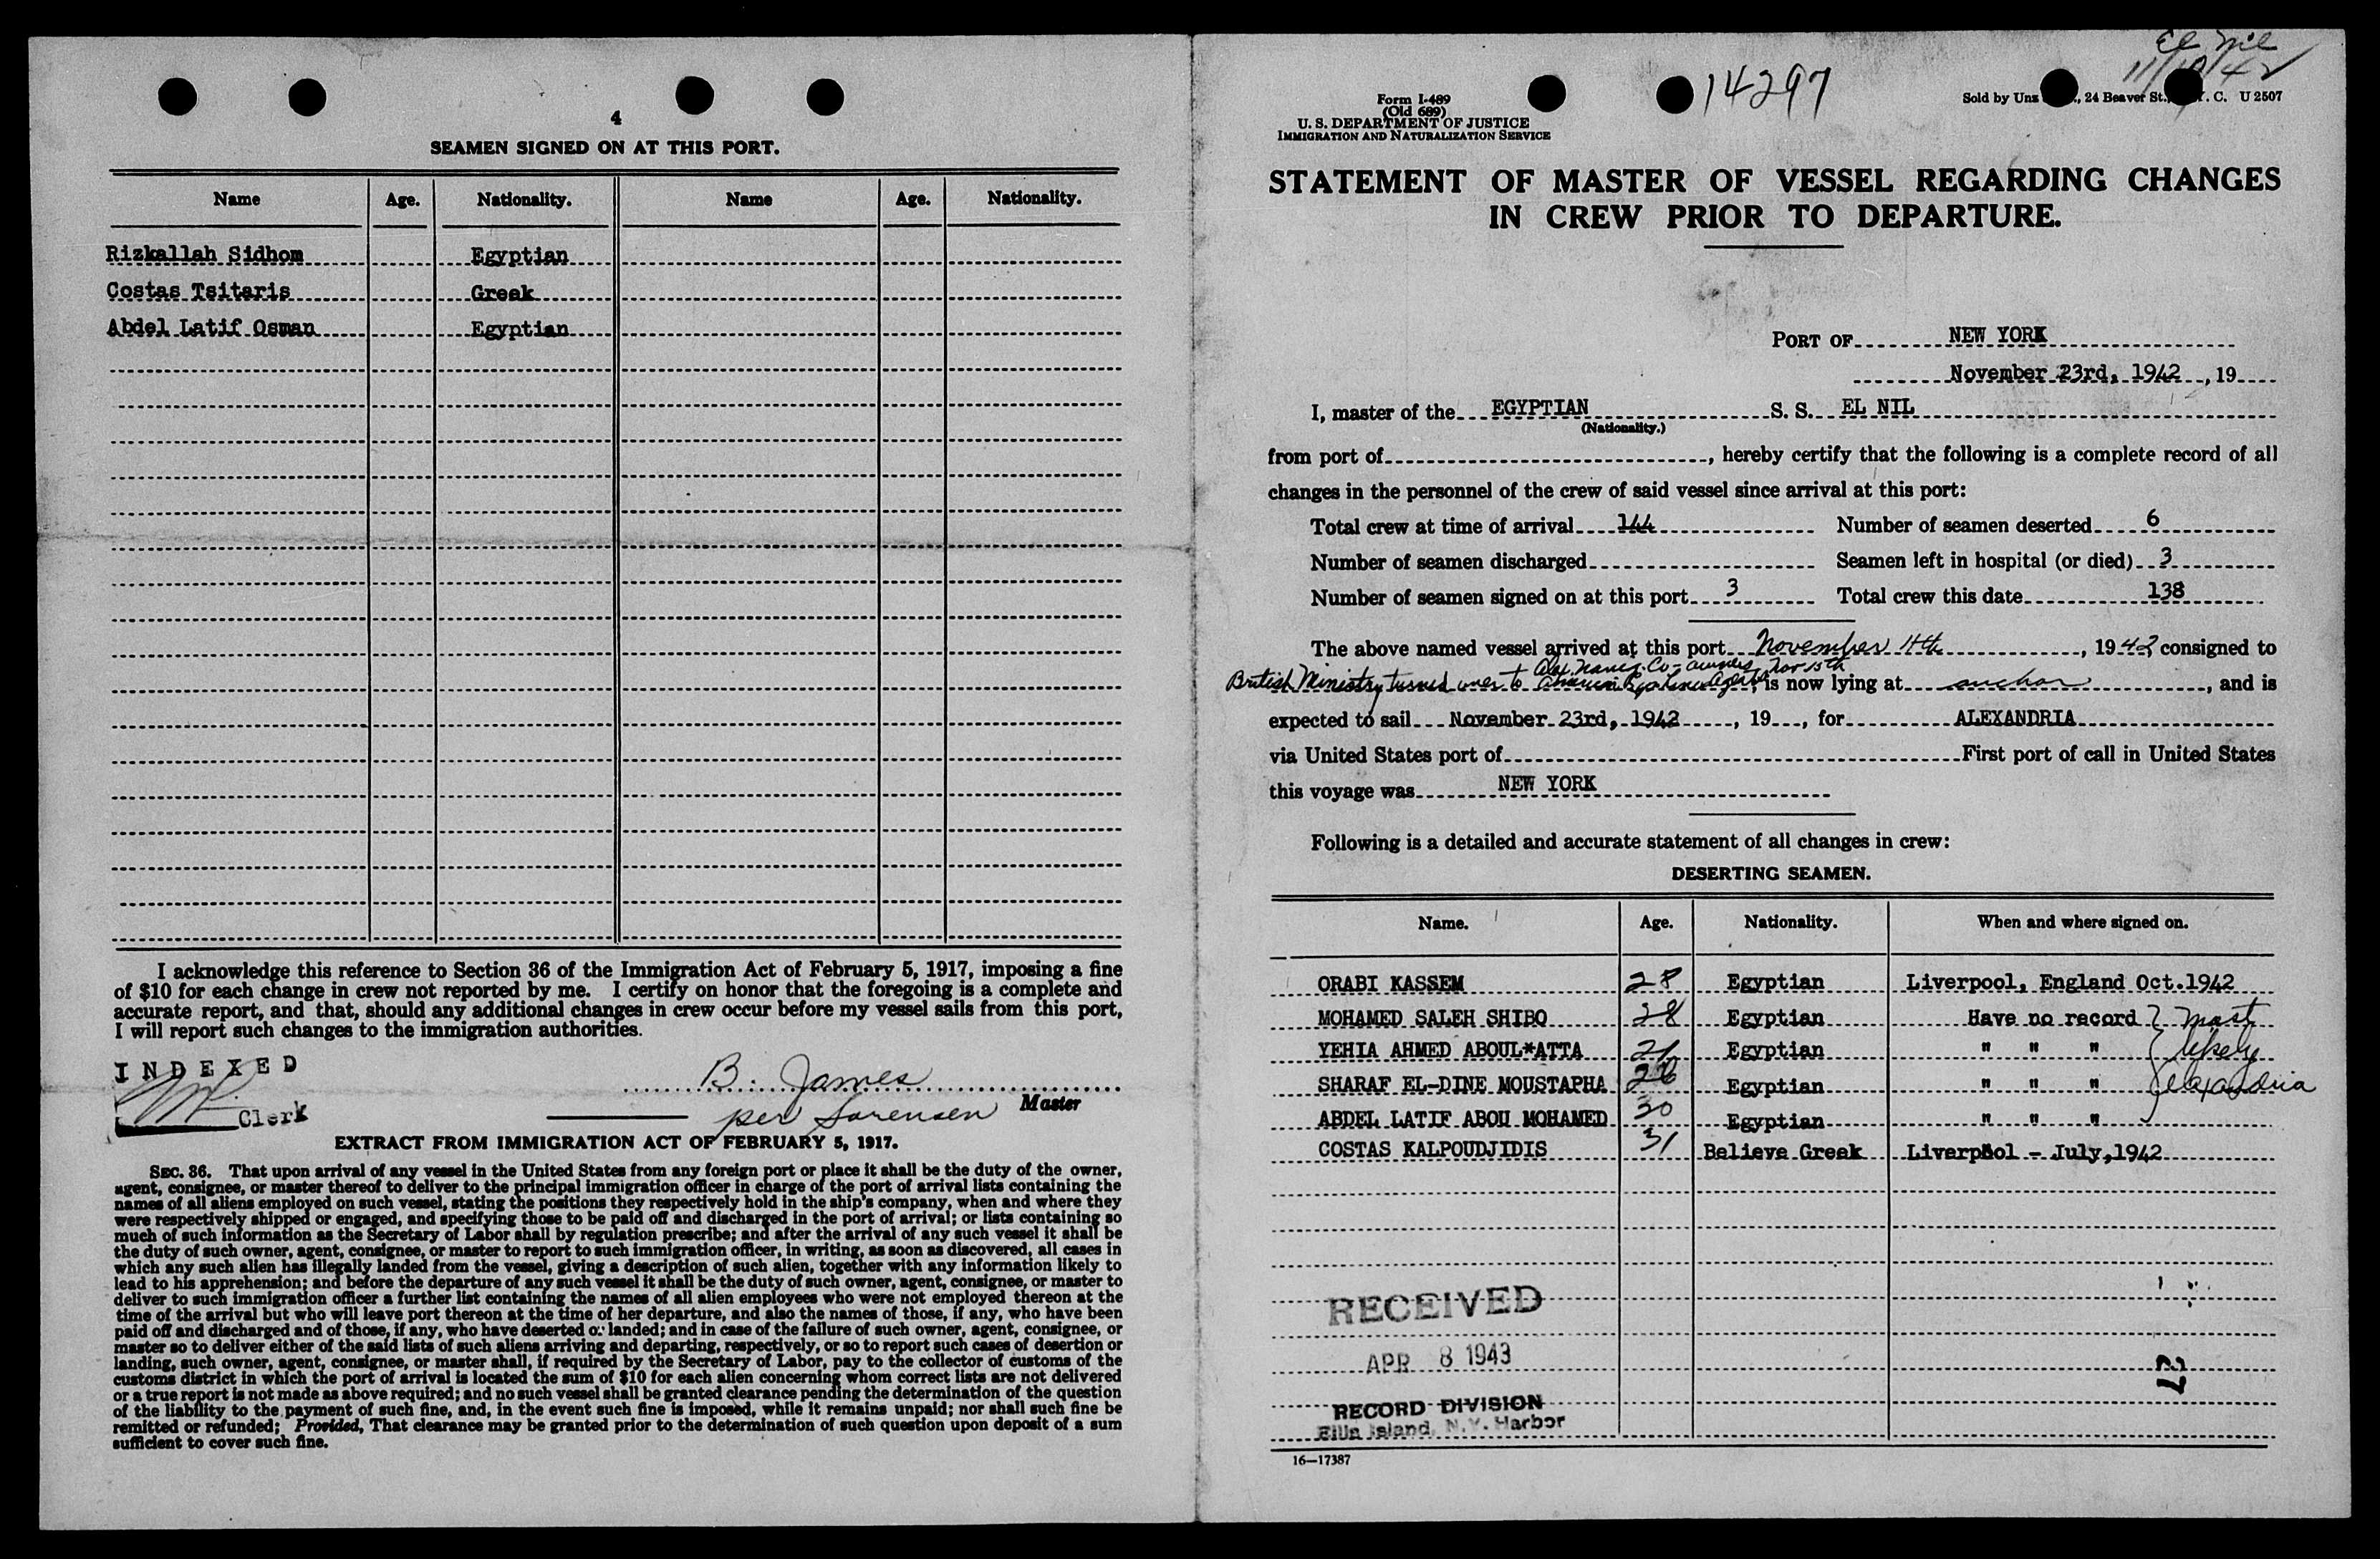 4
SEAMEN SIGNED ON AT THIS PORT.
Name Age. Nationality. Name Age. Nationality.
Rizkallah Sidhom Egyptian
Costas Tsitaris Greek
Abdel Latif Osman Egyptian
I acknowledge this reference to Section 36 of the Immigration Act of February 5, 1917, imposing a fine
of $10 for each change in crew not reported by me. I certify on honor that the foregoing is a complete and
accurate report, and that, should any additional changes in crew occur before my vessel sails from this port,
I will report such changes to the immigration authorities.
INDEXED
Clerk
B. James
per Sorensen Master
EXTRACT FROM IMMIGRATION ACT OF FEBRUARY 5, 1917.
SEC. 36. That upon arrival of any vessel in the United States from any foreign port or place it shall be the duty of the owner,
agent, consignee, or master thereof to deliver to the principal immigration officer in charge of the port of arrival lists containing the
names of all aliens employed on such vessel, stating the positions they respectively hold in the ship's company, when and where they
were respectively shipped or engaged, and specifying those to be paid off and discharged in the port of arrival; or lists containing so
much of such information as the Secretary of Labor shall by regulation prescribe; and after the arrival of any such vessel it shall be
the duty of such owner, agent, consignee, or master to report to such immigration officer, in writing, as soon as discovered, all cases in
which any such alien has illegally landed from the vessel, giving a description of such alien, together with any information likely to
lead to his apprehension; and before the departure of any such vessel it shall be the duty of such owner, agent, consignee, or master to
deliver to such immigration officer a further list containing the names of all alien employees who were not employed thereon at the
time of the arrival but who will leave port thereon at the time of her departure, and also the names of those, if any, who have been
paid off and discharged and of those, if any, who have deserted or landed; and in case of the failure of such owner, agent, consignee, or
master so to deliver either of the said lists of such aliens arriving and departing, respectively, or so to report such cases of desertion or
landing, such owner, agent, consignee, or master shall, if required by the Secretary of Labor, pay to the collector of customs of the
customs district in which the port of arrival is located the sum of $10 for each alien concerning whom correct lists are not delivered
or a true report is not made as above required; and no such vessel shall be granted clearance pending the determination of the question
of the liability to the payment of such fine, and, in the event such fine is imposed, while it remains unpaid; nor shall such fine be
remitted or refunded; Provided, That clearance may be granted prior to the determination of such question upon deposit of a sum
sufficient to cover such fine.
El Nil
11/10/42
14297
Form I-489
(Old 689)
U. S. DEPARTMENT OF JUSTICE
IMMIGRATION AND NATURALIZATION SERVICE
Sold by Unz 24 Beaver St., Y. C. U 2507
STATEMENT OF MASTER OF VESSEL REGARDING CHANGES
IN CREW PRIOR TO DEPARTURE.
PORT OF NEW YORK
November 23rd, 1942, 19
I, master of the EGYPTIAN S. S. EL NIL
(Nationality.)
from port of , hereby certify that the following is a complete record of all
changes in the personnel of the crew of said vessel since arrival at this port:
Total crew at time of arrival 144 Number of seamen deserted 6
Number of seamen discharged Seamen left in hospital (or died) 3
Number of seamen signed on at this port 3 Total crew this date 138
The above named vessel arrived at this port November 11th, 1942, consigned to
Co - owners Nov 15th
British Ministry turned over to , is now lying at anchor, and is
expected to sail November 23rd, 1942, 19, for ALEXANDRIA
via United States port of First port of call in United States
this voyage was NEW YORK
Following is a detailed and accurate statement of all changes in crew:
DESERTING SEAMEN.
Name. Age. Nationality. When and where signed on.
ORABI KASSEM 28 Egyptian Liverpool, England Oct.1942
MOHAMED SALEH SHIBO 28 Egyptian Have no record } most
YEHIA AHMED ABOUL*ATTA 21 Egyptian " " " likely
SHARAF EL-DINE MOUSTAPHA 26 Egyptian " " " Alexandria
ABDEL LATIF ABOU MOHAMED 30 Egyptian " " "
COSTAS KALPOUDJIDIS 31 Believe Greek Liverpool - July,1942
RECEIVED
APR 8 1943
RECORD DIVISION
Ellis Island, N.Y. Harbor
16—17387